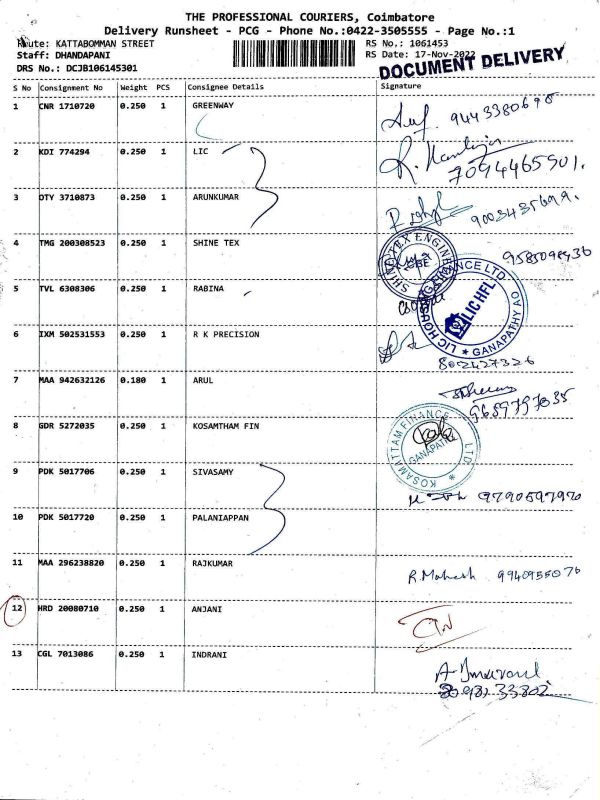 THE PROFESSIONAL COURIERS, Coimbatore
Delivery Runsheet - PCG - Phone No.:0422-3505555 - Page No.:1
Route: KATTABOMMAN STREET
RS No.: 1061453
Staff: DHANDAPANI
RS Date: 17-Nov-2022
DRS No.: DCJB106145301
DOCUMENT DELIVERY
S No Consignment No Weight PCS Consignee Details Signature
1 CNR 1710720 0.250 1 GREENWAY
9443380698
2 KDI 774294 0.250 1 LIC
7094465901.
3 OTY 3710873 0.250 1 ARUNKUMAR
9003435699.
4 TMG 200308523 0.250 1 SHINE TEX
SHINE TEX ENGINE
9585098936
5 TVL 6308306 0.250 1 RABINA
LIC HOUSING FINANCE LTD
LIC HFL
GANAPATHY AO
6 IXM 502531553 0.250 1 R K PRECISION
802427326
7 MAA 942632126 0.180 1 ARUL
9659797835
8 GDR 5272035 0.250 1 KOSAMTHAM FIN
KOSAMATTAM FINANCE LTD.
GANAPATHY
9 PDK 5017706 0.250 1 SIVASAMY
9790597970
10 PDK 5017720 0.250 1 PALANIAPPAN
11 MAA 296238820 0.250 1 RAJKUMAR
R.Mahesh 9940955076
12 HRD 20080710 0.250 1 ANJANI
13 CGL 7013086 0.250 1 INDRANI